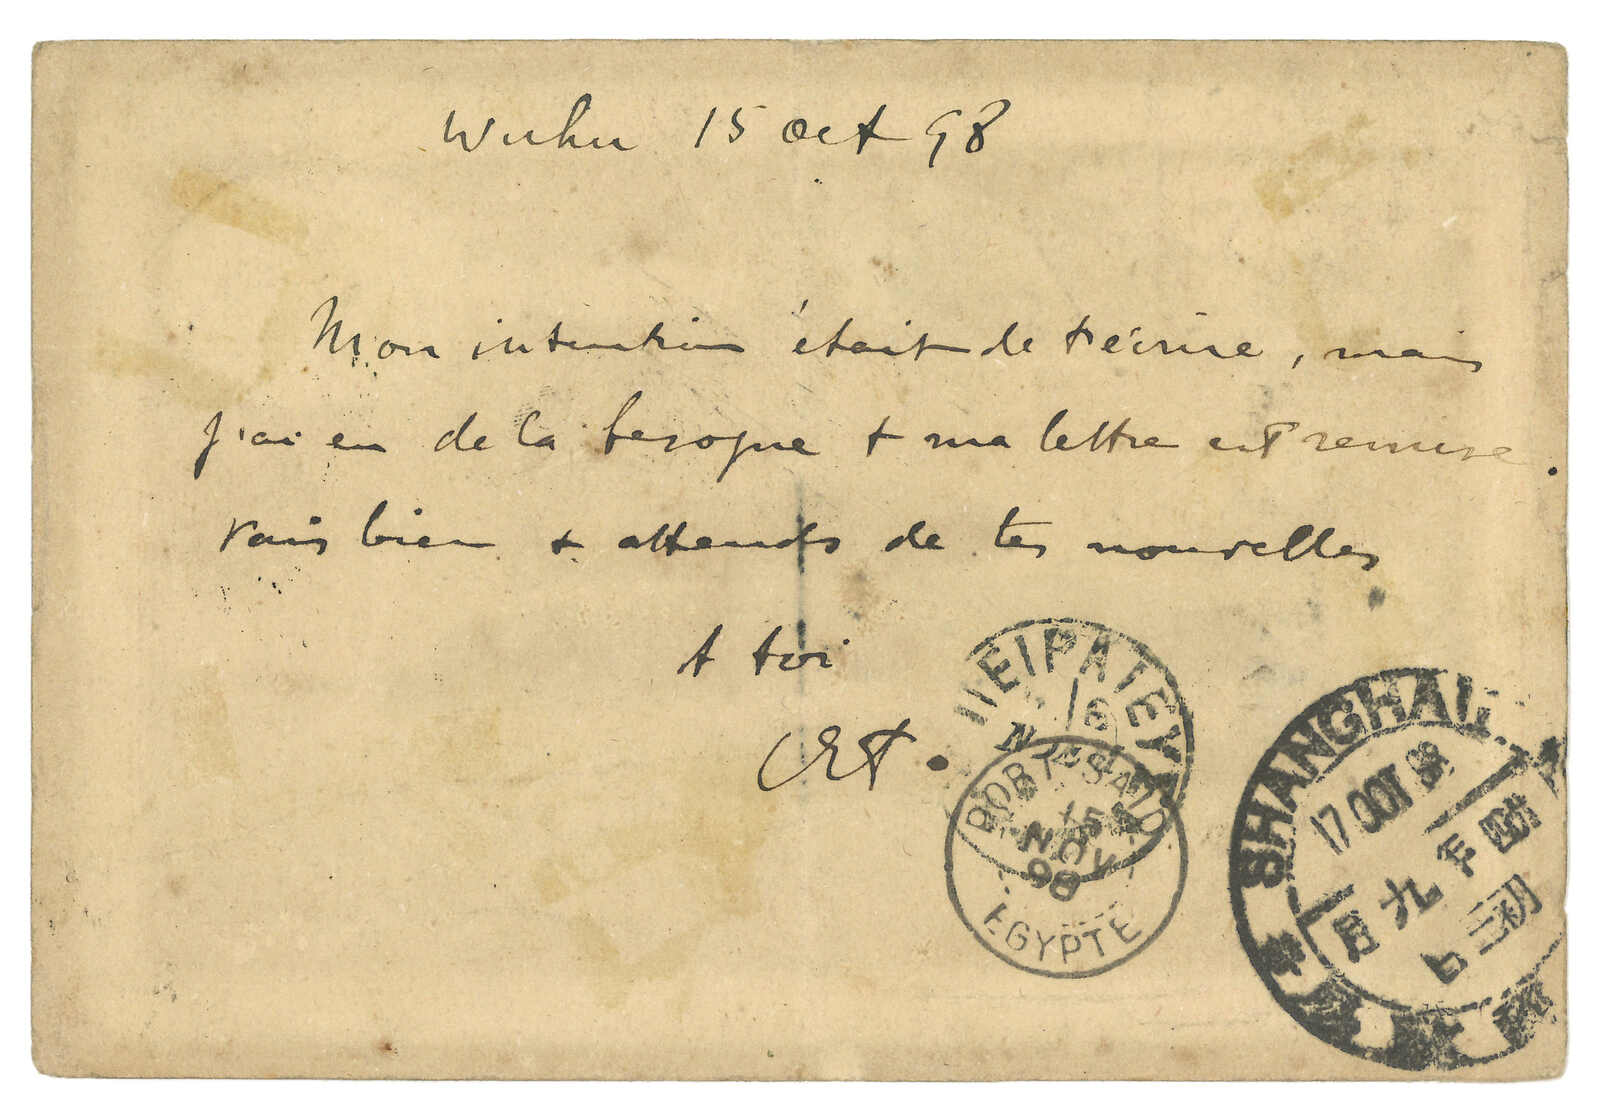 Wuhu 15 Oct 98
Mon intention était de t'écrire, mais
j'ai eu de la besogne + ma lettre est remise.
Vais bien + attends de tes nouvelles
A toi
ΠΕΙΡΑΙΕΥΣ
PORT-SAID
X 5
NOV
98
EGYPTE
SHANGHAI
17 OCT 98
年四
月九
日三初